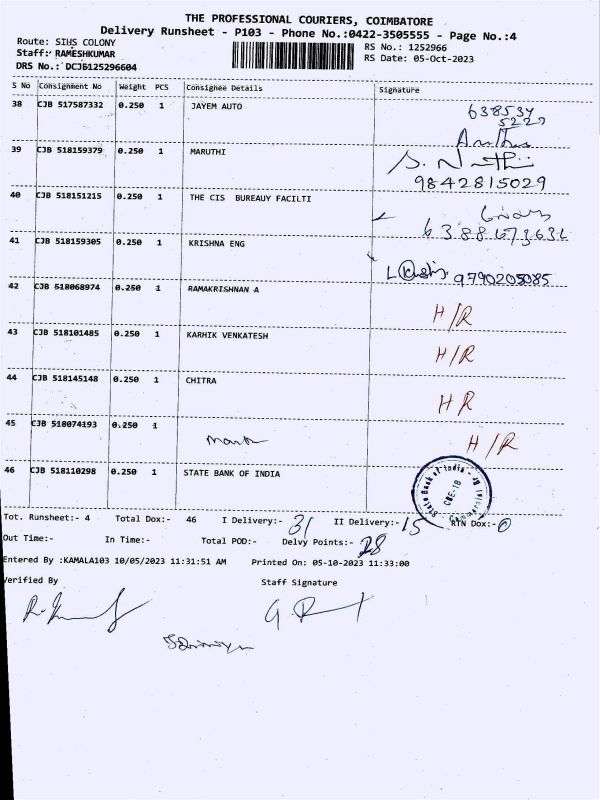 THE PROFESSIONAL COURIERS, COIMBATORE
Delivery Runsheet - P103 - Phone No.:0422-3505555 - Page No.:4
Route: SIHS COLONY RS No.: 1252966
Staff: RAMESHKUMAR RS Date: 05-Oct-2023
DRS No.: DCJB125296604
S No Consignment No Weight PCS Consignee Details Signature
38 CJB 517587332 0.250 1 JAYEM AUTO 638534
5227
39 CJB 518159379 0.250 1 MARUTHI
9842815029
40 CJB 518151215 0.250 1 THE CIS BUREAUY FACILTI
41 CJB 518159305 0.250 1 KRISHNA ENG
9790205085
42 CJB 518068974 0.250 1 RAMAKRISHNAN A H/R
43 CJB 518101485 0.250 1 KARHIK VENKATESH H/R
44 CJB 518145148 0.250 1 CHITRA H R
45 CJB 518074193 0.250 1 H/R
46 CJB 518110298 0.250 1 STATE BANK OF INDIA State Bank of India CBE-18
Tot. Runsheet:- 4 Total Dox:- 46 I Delivery:- 31 II Delivery:- 15 RTN Dox:- 0
Out Time:- In Time:- Total POD:- Delvy Points:- 28
Entered By :KAMALA103 10/05/2023 11:31:51 AM Printed On: 05-10-2023 11:33:00
Verified By Staff Signature